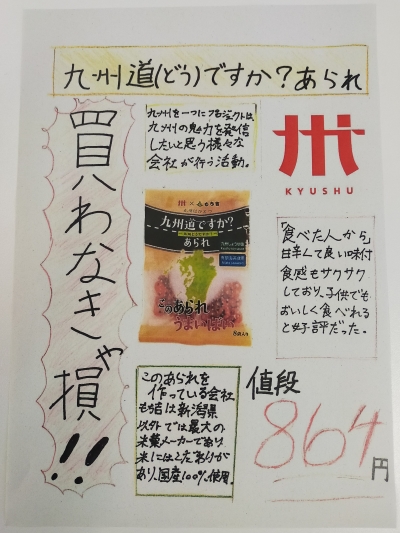 九州道(どう)ですか?あられ
買わなきゃ損!!
九州を一つにプロジェクトは、
九州の魅力を発信
したいと思う様々な
会社が行う活動。
KYUSHU
九州道ですか?
あられ
このあられ
うまいばい
「食べた人から」
甘辛くて良い味付
食感もサクサク
しており、子供でも
おいしく食べれる
と好評だった。
このあられを
作っている会社
もち吉は新潟県
以外では最大の
米菓メーカーであり
米にはこだわりが
あり、国産100%使用。
値段
864円